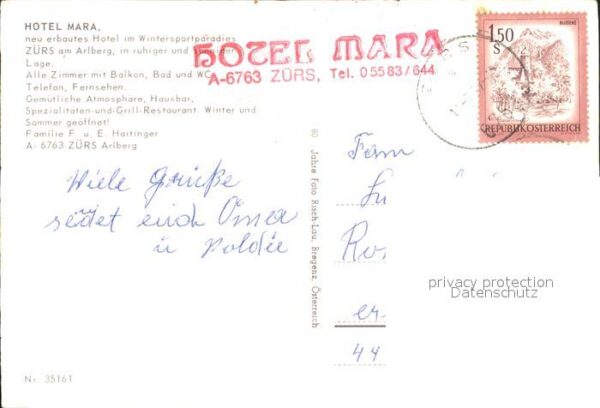 HOTEL MARA,
neu erbautes Hotel im Wintersportparadies
ZÜRS am Arlberg, in ruhiger und sonniger
Lage.
Alle Zimmer mit Balkon, Bad und WC,
Telefon, Fernsehen.
Gemütliche Atmosphäre, Hausbar,
Spezialitäten-und-Grill-Restaurant. Winter und
Sommer geöffnet!
Familie F. u. E. Hartinger
A- 6763 ZÜRS Arlberg
HOTEL MARA
A-6763 ZÜRS, Tel. 05583/644
1.50
S
BLUDENZ
REPUBLIK ÖSTERREICH
Viele Grüße
sedet euch Omea
u Poldée
80 Jahre Foto Risch-Lau, Bregenz, Österreich
Fam
Lu
Ru
er
44
privacy protection
Datenschutz
Nr. 35161